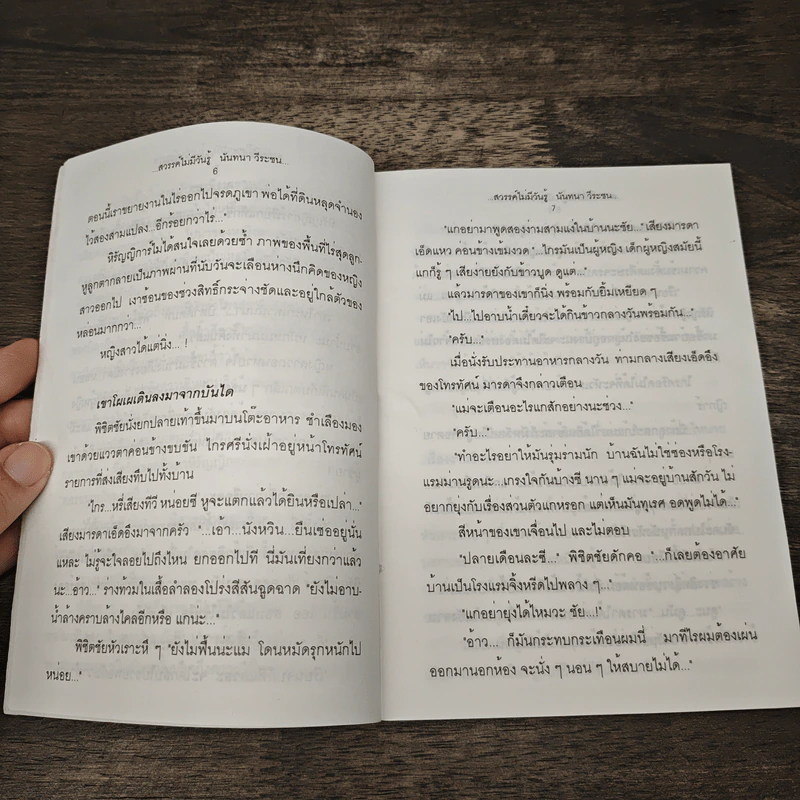 ...สวรรค์ไม่มีวันรู้ นันทนา วีระชน...
6
ตอนนี้เราขยายงานในไร่ออกไปจรดภูเขา พ่อได้ที่ดินหลุดจำนอง
ไว้สองสามแปลง...อีกร้อยกว่าไร่..."
หิรัญญิการ์ไม่ได้สนใจเลยด้วยซ้ำ ภาพของพื้นที่ไร่สุดลูก-
หูลูกตากลายเป็นภาพผ่านที่นับวันจะเลือนห่างนึกคิดของหญิง
สาวออกไป เงาซ้อนของช่วงสิทธิ์กระจ่างชัดและอยู่ใกล้ตัวของ
หล่อนมากกว่า...
หญิงสาวได้แต่นิ่ง... !
เขาโผเผเดินลงมาจากบันได
พิชิตชัยนั่งยกปลายเท้าขึ้นมาบนโต๊ะอาหาร ชำเลืองมอง
เขาด้วยแววตาค่อนข้างขบขัน ไกรศรีนั่งเฝ้าอยู่หน้าโทรทัศน์
รายการที่ส่งเสียงทึบไปทั้งบ้าน
"ไกร...หรี่เสียงทีวี หน่อยซี หูจะแตกแล้วได้ยินหรือเปล่า..."
เสียงมารดาเอ็ดอึงมาจากครัว "...เอ้า...นังหวิน...ยืนเซ่ออยู่นั่น
แหละ ไม่รู้จะใจลอยไปถึงไหน ยกออกไปที นี่มันเที่ยงกว่าแล้ว
นะ...อ้าว..." ร่างท้วมในเสื้อลำลองโปร่งสีสันฉูดฉาด "ยังไม่อาบ-
น้ำล้างคราบล้างไคลอีกหรือ แกน่ะ..."
พิชิตชัยหัวเราะหึ ๆ "ยังไม่ฟื้นน่ะแม่ โดนหมัดรุกหนักไป
หน่อย..."
...สวรรค์ไม่มีวันรู้ นันทนา วีระชน...
7
"แกอย่ามาพูดสองง่ามสามแง่ในบ้านนะชัย..." เสียงมารดา
เอ็ดแหว ค่อนข้างเข้มงวด "...ไกรมันเป็นผู้หญิง เด็กผู้หญิงสมัยนี้
แกก็รู้ ๆ เสียง่ายยังกับข้าวบูด ดูแต่..."
แล้วมารดาของเขาก็นิ่ง พร้อมกับยิ้มเหยียด ๆ
"ไป...ไปอาบน้ำเดี๋ยวจะได้กินข้าวกลางวันพร้อมกัน..."
"ครับ..."
เมื่อนั่งรับประทานอาหารกลางวัน ท่ามกลางเสียงเอ็ดอึง
ของโทรทัศน์ มารดาจึงกล่าวเตือน
"แม่จะเตือนอะไรแกสักอย่างนะช่วง..."
"ครับ..."
"ทำอะไรอย่าให้มันรุมรามนัก บ้านฉันไม่ใช่ซ่องหรือโรง-
แรมม่านรูดนะ...เกรงใจกันบ้างซี นาน ๆ แม่จะอยู่บ้านสักวัน ไม่
อยากยุ่งกับเรื่องส่วนตัวแกหรอก แต่เห็นมันทุเรศ อดพูดไม่ได้..."
สีหน้าของเขาเจื่อนไป และไม่ตอบ
"ปลายเดือนละซี..." พิชิตชัยดักคอ "...ก็เลยต้องอาศัย
บ้านเป็นโรงแรมจิ้งหรีดไปพลาง ๆ..."
"แกอย่ายุ่งได้ไหมวะ ชัย...!"
"อ้าว... ก็มันกระทบกระเทือนผมนี่ มาทีไรผมต้องเผ่น
ออกมานอกห้อง จะนั่ง ๆ นอน ๆ ให้สบายไม่ได้..."